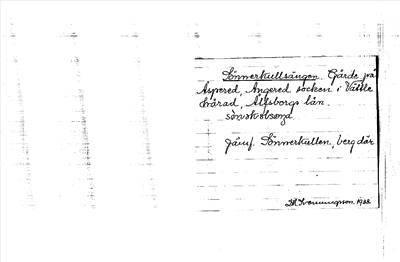 Sönnerkullsängen. Gärde på
Aspered, Angered socken i Vättle
härad, Älfsborgs län.
Jämf. Sönnerkullen, berg där
1922.